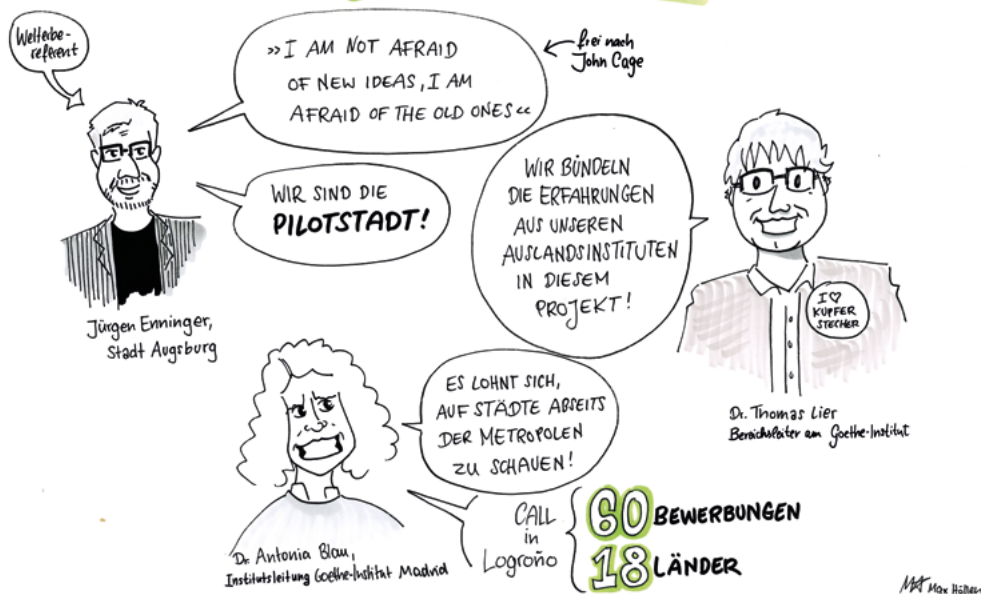 Welterbe-
referent
»I AM NOT AFRAID
OF NEW IDEAS, I AM
AFRAID OF THE OLD ONES«
frei nach
John Cage
WIR SIND DIE
PILOTSTADT!
Jürgen Enninger,
Stadt Augsburg
WIR BÜNDELN
DIE ERFAHRUNGEN
AUS UNSEREN
AUSLANDSINSTITUTEN
IN DIESEM
PROJEKT!
I ♡
KUPFER
STECHER
Dr. Thomas Lier
Bereichsleiter am Goethe-Institut
ES LOHNT SICH,
AUF STÄDTE ABSEITS
DER METROPOLEN
ZU SCHAUEN!
Dr. Antonia Blau,
Institutsleitung Goethe-Institut Madrid
CALL
in
Logroño
60 BEWERBUNGEN
18 LÄNDER
Max